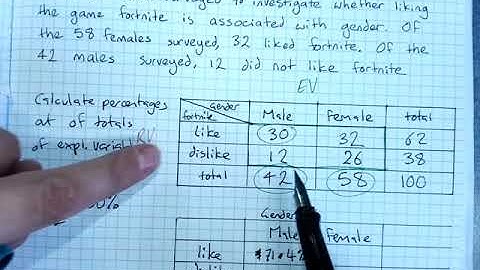 to investigate whether liking
the game fortnite is associated with gender. Of
the 58 females surveyed, 32 liked fortnite. Of the
42 males surveyed, 12 did not like fortnite
EV
Calculate percentages
out of totals
of expl. variabl
RV
Gender
fortnite
Male Female total
like 30 32 62
dislike 12 26 38
total 42 58 100
%
Gender
Male Female
like 71.4